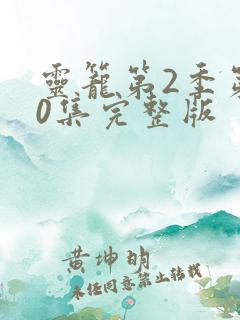 靈籠第2季第
0集完整版
黄坤明
未经同意禁止转载